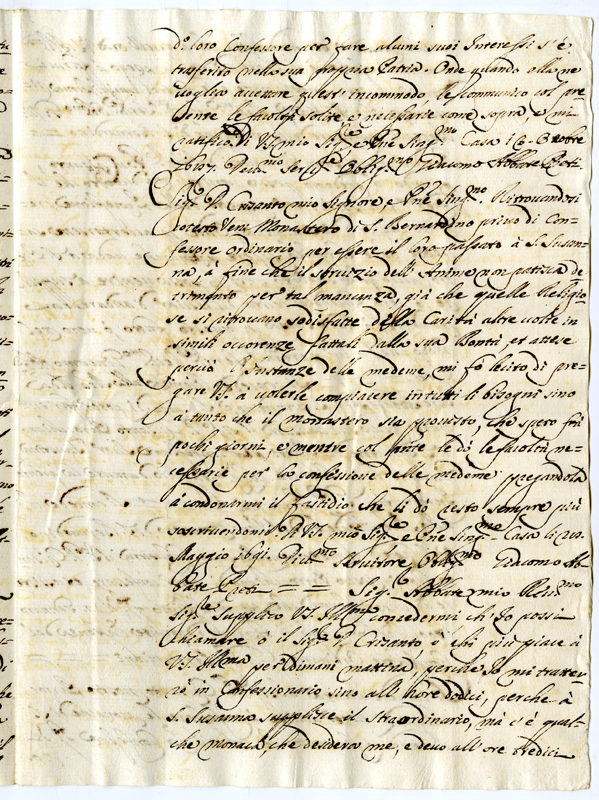 d.o loro Confessore per fare alcuni suoi Interessi s'è
trasferito nella sua propria Patria. Onde quando ella ne
voglia accettare quest'incommodo, le communico col pre=
sente le facoltà solite, e necessarie come sopra, e mi
ratifico. Di V.S. mio Sig.re e Pne Sing.mo Casa i 2. 8nobre
1687. Deu.mo Ser.re Obblig.mo Giacomo Abbate
Sig.r D. Crisanto mio Signore, e Pne Sing.mo. Ritrovandosi
cotesto Ven. Monastero di S. Bernardino privo di Con=
fessore ordinario per essere il loro passato à S. Susan=
na, à fine che il servizio dell'Anime non patisca de
trimento per tal mancanza, già che quelle Religio=
se si ritrovano sodisfatte della Carità altre volte in
simili occorenze fattali dalla sua Bontà, et attese
perciò l'Instanze delle medeme, mi fò lecito di pre=
gare V.S. à volerle compiacere in tutti li bisogni sino
à tanto che il monastero sia provisto, che spero frà
pochi giorni, e mentre col pnte le dò le facoltà ne=
cessarie per le confessione delle medeme pregandola
à condonarmi il fastidio che li dò resto sempre più
sottoscrivendomi. D V.S. mio Sig.re e Pne Sing.mo Casa li 20.
Maggio 1691. Deu.mo Servitore Obblig.mo Giacomo Ab=
bate = = Sig.r Abbate mio
Sig.re Supplico V.S. Ill.ma concedermi ch'Io possi
chiamare ò il Sig.r D. Crisanto, ò chi più piace à
V.S. Ill.ma per Dimani mattina, perche Io mi tratter=
rò in Confessionario sino all'hore dodici, perche à
S. Susanna supplisce il straordinario, mà c'è qual=
che monaca, che desidera me, e devo all'ore tredici